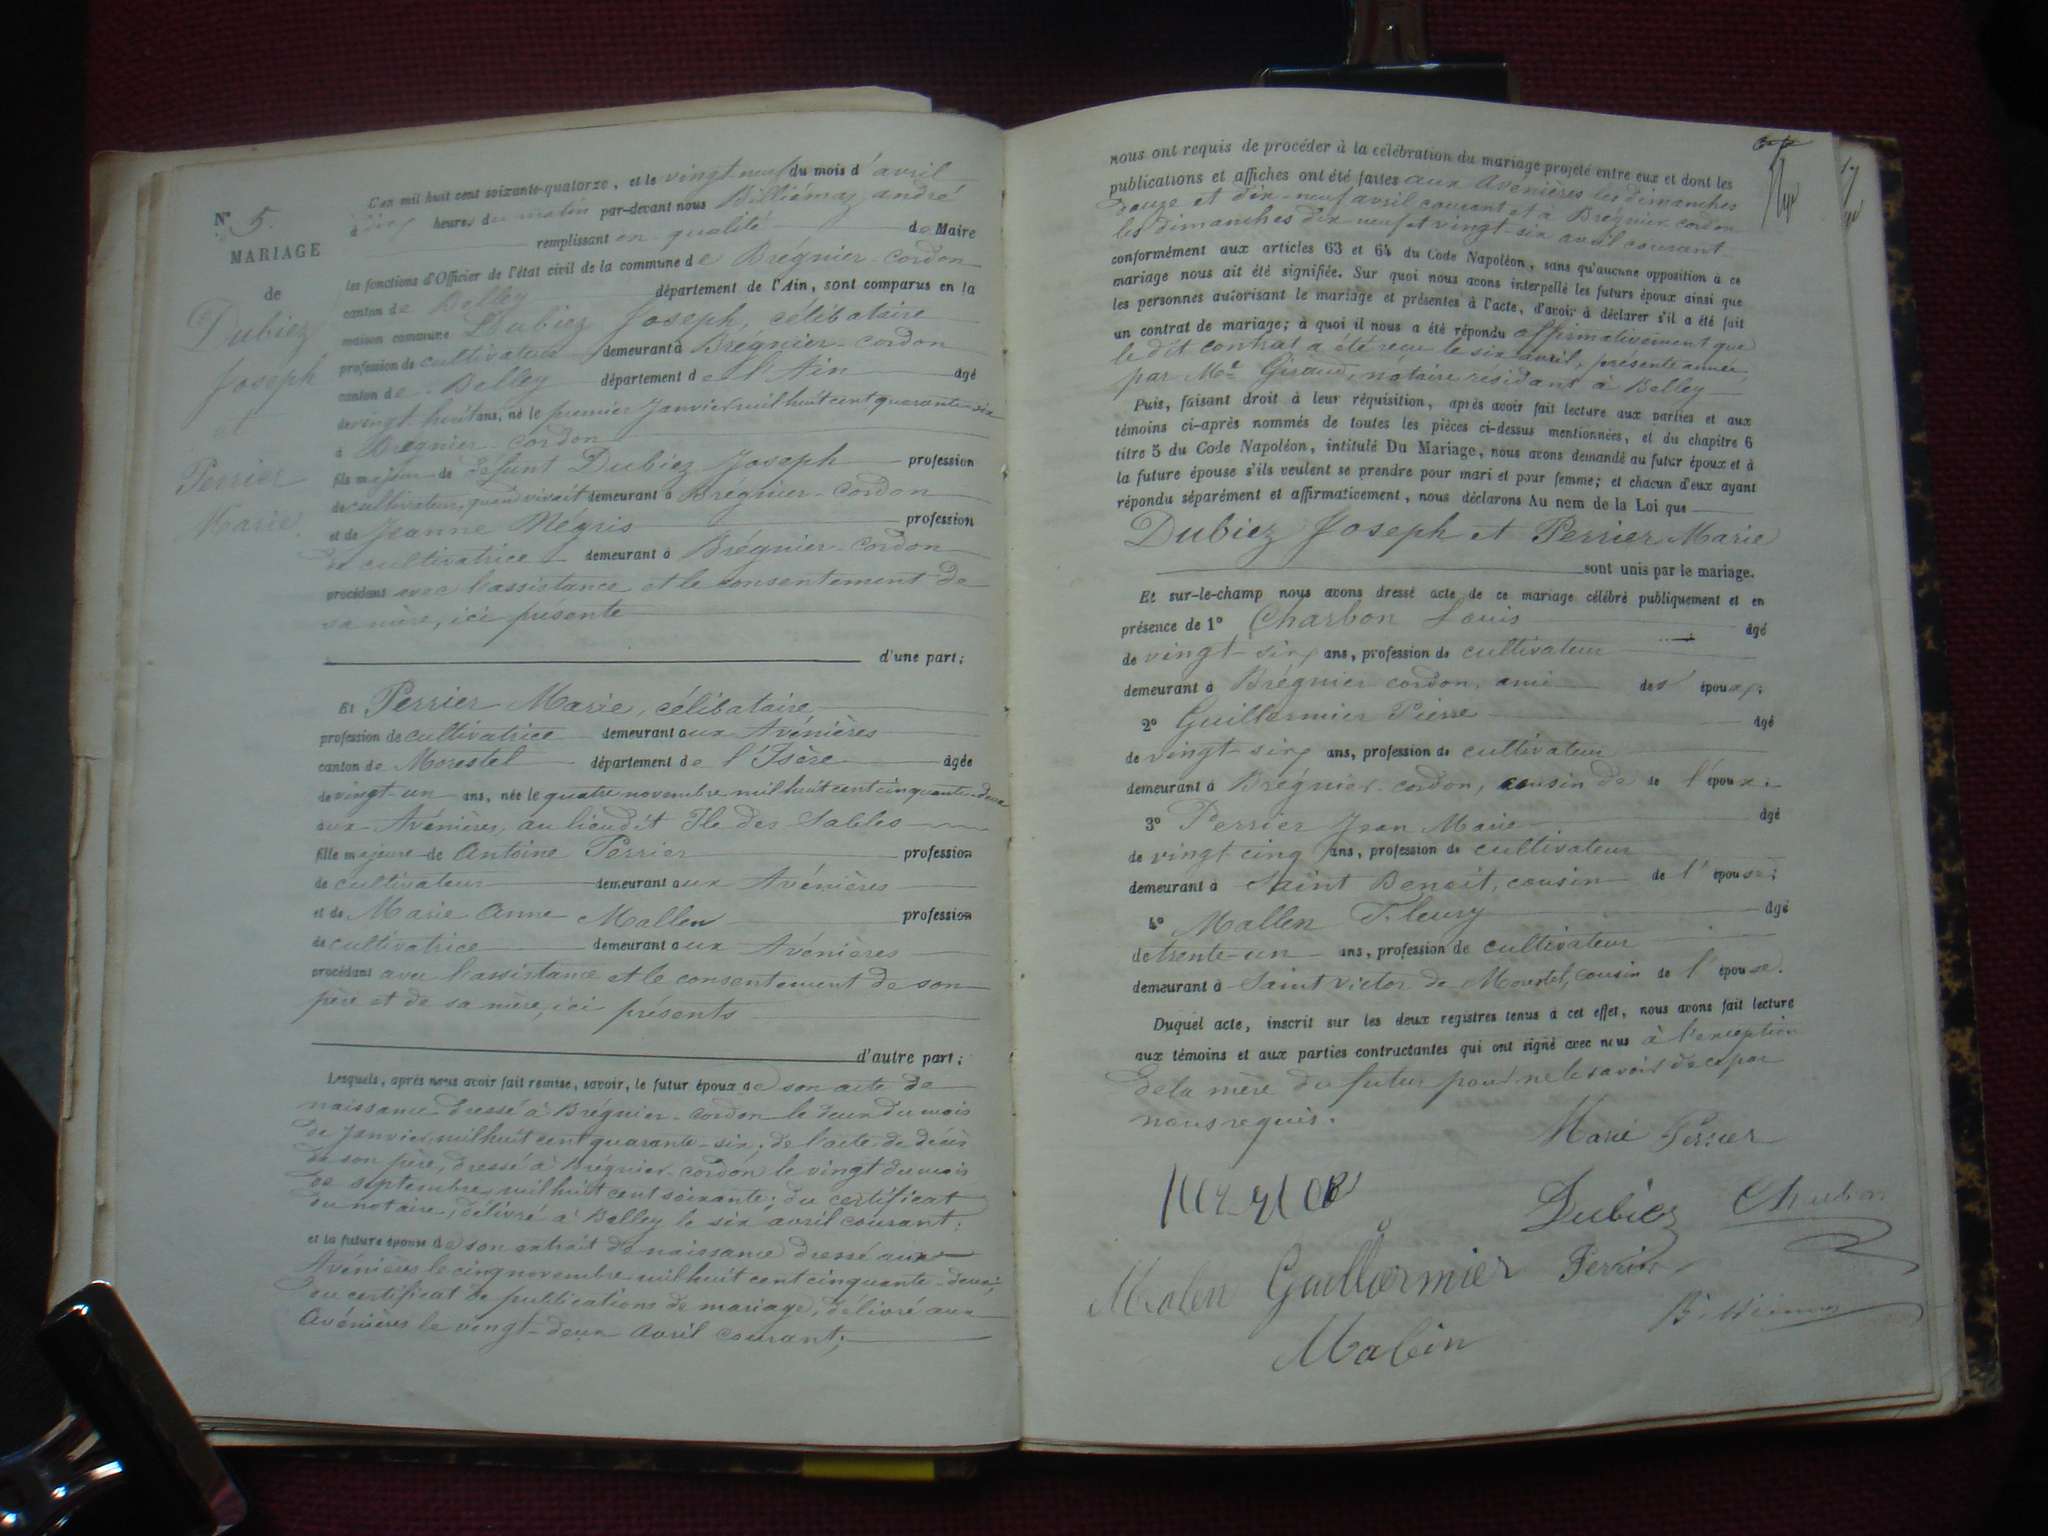 N° 5.
MARIAGE
de
Dubiez
Joseph
et
Perrier
Marie.
L'an mil huit cent soixante-quatorze, et le vingt neuf du mois d'avril
à dix heures du matin par-devant nous Billiémaz andré
remplissant en qualité de Maire
les fonctions d'Officier de l'état civil de la commune de Brégnier-cordon
canton de Belley département de l'Ain, sont comparus en la
maison commune Dubiez Joseph, célibataire
profession de cultivateur demeurant à Brégnier-cordon
canton de Belley département de l'Ain âgé
de vingt huit ans, né le premier Janvier mil huit cent quarante-six
à Bregnier-cordon
fils majeur de défunt Dubiez Joseph profession
de cultivateur, quand vivait demeurant à Brégnier-cordon
et de Jeanne Négris profession
de cultivatrice demeurant à Brégnier-cordon
procédant avec l'assistance et le consentement de
sa mère, ici présente
d'une part;
Et Perrier Marie, célibataire
profession de cultivatrice demeurant aux Avénières
canton de Morestel département de l'Isère âgée
de vingt-un ans, née le quatre novembre mil huit cent cinquante-deux
aux Avénières, au lieudit Ile des Sables
fille majeure de Antoine Perrier profession
de cultivateur demeurant aux Avénières
et de Marie Anne Mallen profession
de cultivatrice demeurant aux Avénières
procédant avec l'assistance et le consentement de son
père et de sa mère, ici présents
d'autre part;
Lesquels, après nous avoir fait remise, savoir, le futur époux de son acte de
naissance dressé à Brégnier-cordon le deux du mois
de Janvier mil huit cent quarante-six; de l'acte de décès
de son père, dressé à Brégnier-cordon le vingt du mois
de septembre mil huit cent soixante; du certificat
du notaire, délivré à Belley le six avril courant;
et la future épouse de son extrait de naissance dressé aux
Avénières le cinq novembre mil huit cent cinquante-deux;
du certificat de publications de mariage, délivré aux
Avénières le vingt-deux Avril courant;
nous ont requis de procéder à la célébration du mariage projeté entre eux et dont les
publications et affiches ont été faites aux Avenières les dimanches
douze et dix-neuf avril courant et à Brégnier-cordon
les dimanches dix-neuf et vingt-six avril courant
conformément aux articles 63 et 64 du Code Napoléon, sans qu'aucune opposition à ce
mariage nous ait été signifiée. Sur quoi nous avons interpellé les futurs époux ainsi que
les personnes autorisant le mariage et présentes à l'acte, d'avoir à déclarer s'il a été fait
un contrat de mariage; à quoi il nous a été répondu affirmativement que
le dit contrat a été reçu le six avril, présente année,
par Me Giraud, notaire résidant à Belley
Puis, faisant droit à leur réquisition, après avoir fait lecture aux parties et aux
témoins ci-après nommés de toutes les pièces ci-dessus mentionnées, et du chapitre 6
titre 5 du Code Napoléon, intitulé Du Mariage, nous avons demandé au futur époux et à
la future épouse s'ils veulent se prendre pour mari et pour femme; et chacun d'eux ayant
répondu séparément et affirmativement, nous déclarons Au nom de la Loi que
Dubiez Joseph et Perrier Marie
sont unis par le mariage.
Et sur-le-champ nous avons dressé acte de ce mariage célébré publiquement et en
présence de 1° Charbon Louis âgé
de vingt-six ans, profession de cultivateur
demeurant à Brégnier cordon, ami des époux;
2° Guillermier Pierre âgé
de vingt-six ans, profession de cultivateur
demeurant à Brégnier-cordon, cousin de de l'époux.
3° Perrier Jean Marie âgé
de vingt cinq ans, profession de cultivateur
demeurant à Saint Benoit, cousin de l'épouse;
4° Mallen Fleury âgé
de trente-un ans, profession de cultivateur
demeurant à Saint victor de Morestel, cousin de l'épouse.
Duquel acte, inscrit sur les deux registres tenus à cet effet, nous avons fait lecture
aux témoins et aux parties contractantes qui ont signé avec nous à l'exception
de la mère du futur pour ne le savoir de ce par
nous requis.
Marie Perrier
Dubiez Charbon
Malen Guillermier Perrier
Billiemaz
Malein